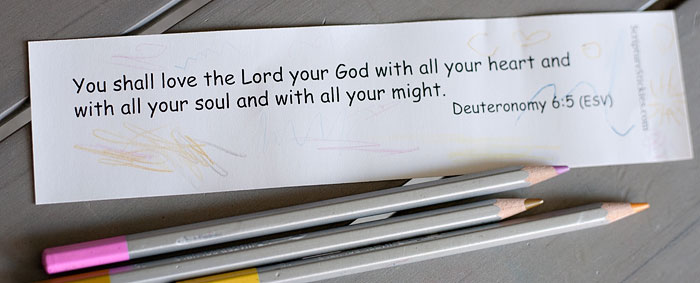 You shall love the Lord your God with all your heart and
with all your soul and with all your might.
Deuteronomy 6:5 (ESV)